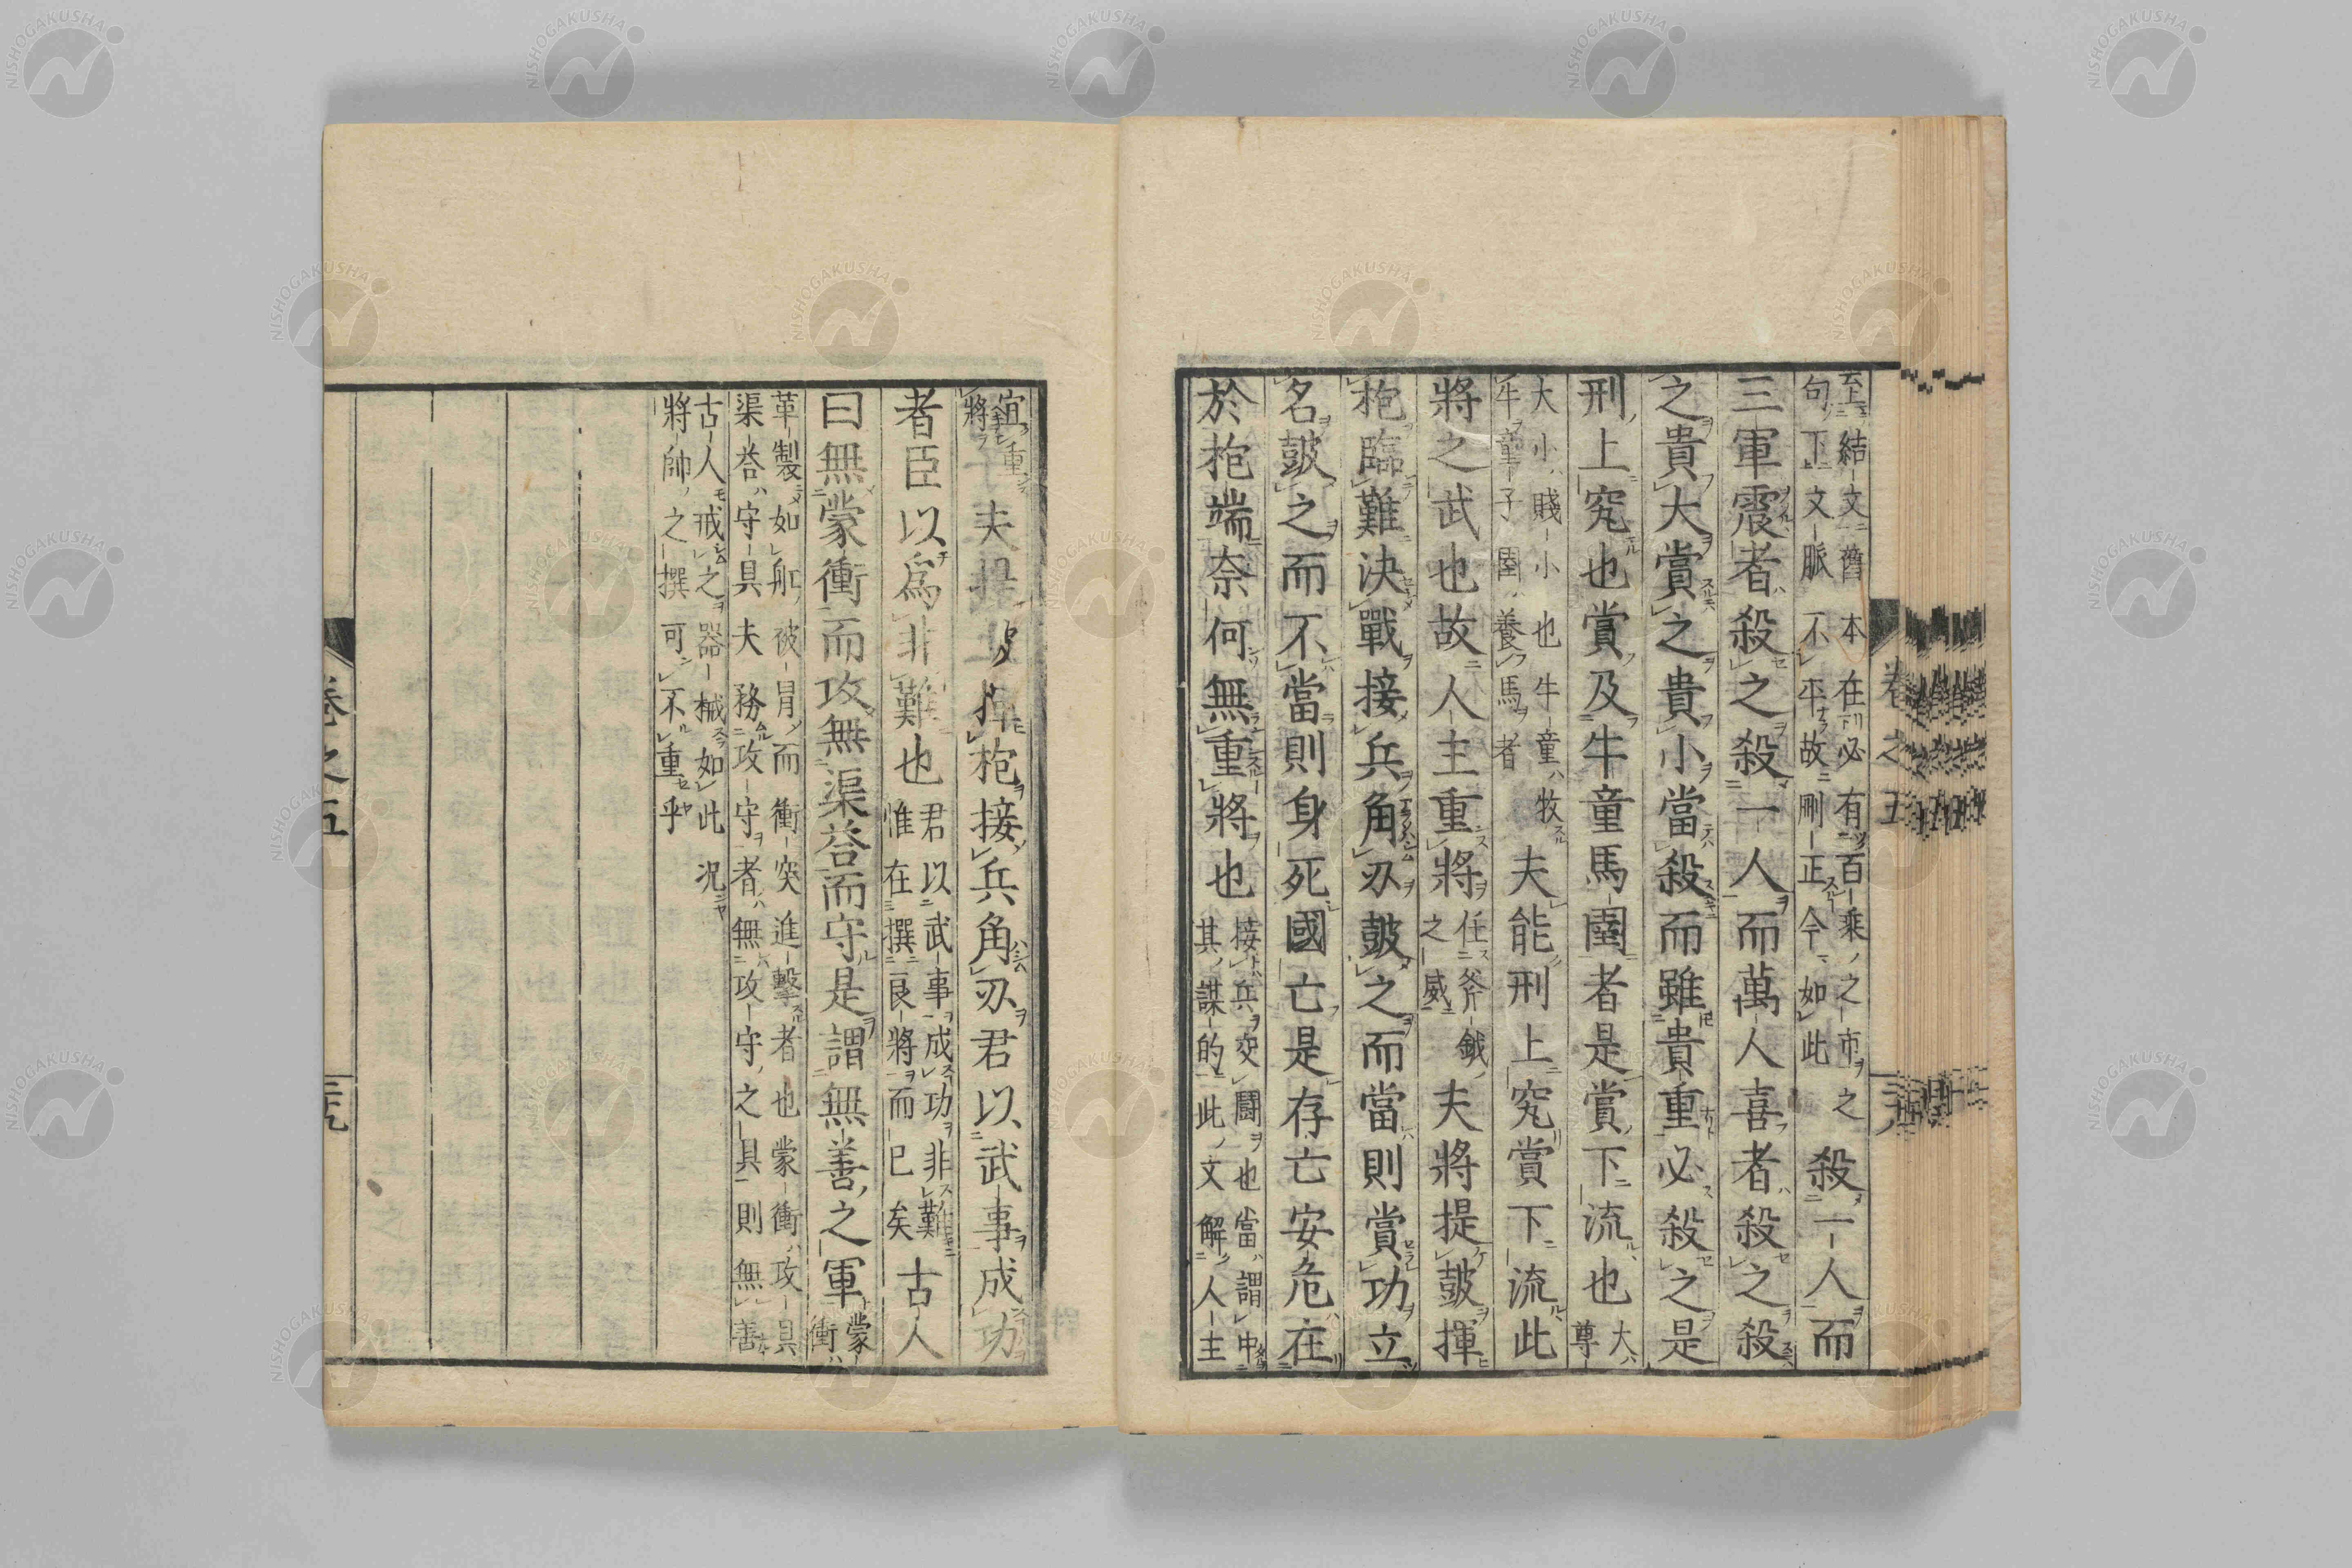 云上結文舊本在必有百乘之市之
句下文脈不平故刪正今如此
殺一人而
三軍震者殺之殺一人而萬人喜者殺之殺
之貴大賞之貴小當殺而雖貴重必殺之是
刑上究也賞及牛童馬圉者是賞下流也
大
尊
大小賤小也牛童牧
牛童子圉養馬者
夫能刑上究賞下流此
將之武也故人主重將
任斧鉞
之威
夫將提鼓揮
枹臨難決戰接兵角刃鼓之而當則賞功立
名鼓之而不當則身死國亡是存亡安危在
於枹端奈何無重將也
接兵交鬪也當謂中
其謀的此文解人主
卷之五
三十八
宜重
將
夫提鼓揮枹接兵角刃君以武事成功
者臣以爲非難也
君以武事成功非難
惟在撰良將而已矣
古人
曰無蒙衝而攻無渠荅而守是謂無善之軍
蒙
衝
革製如舡被冒而衝突進擊者也蒙衝攻具
渠荅守具夫務攻守者無攻守之具則無善
古人戒之器械如此況
將帥之撰可不重乎
卷之五
三十九
NISHOGAKUSHA